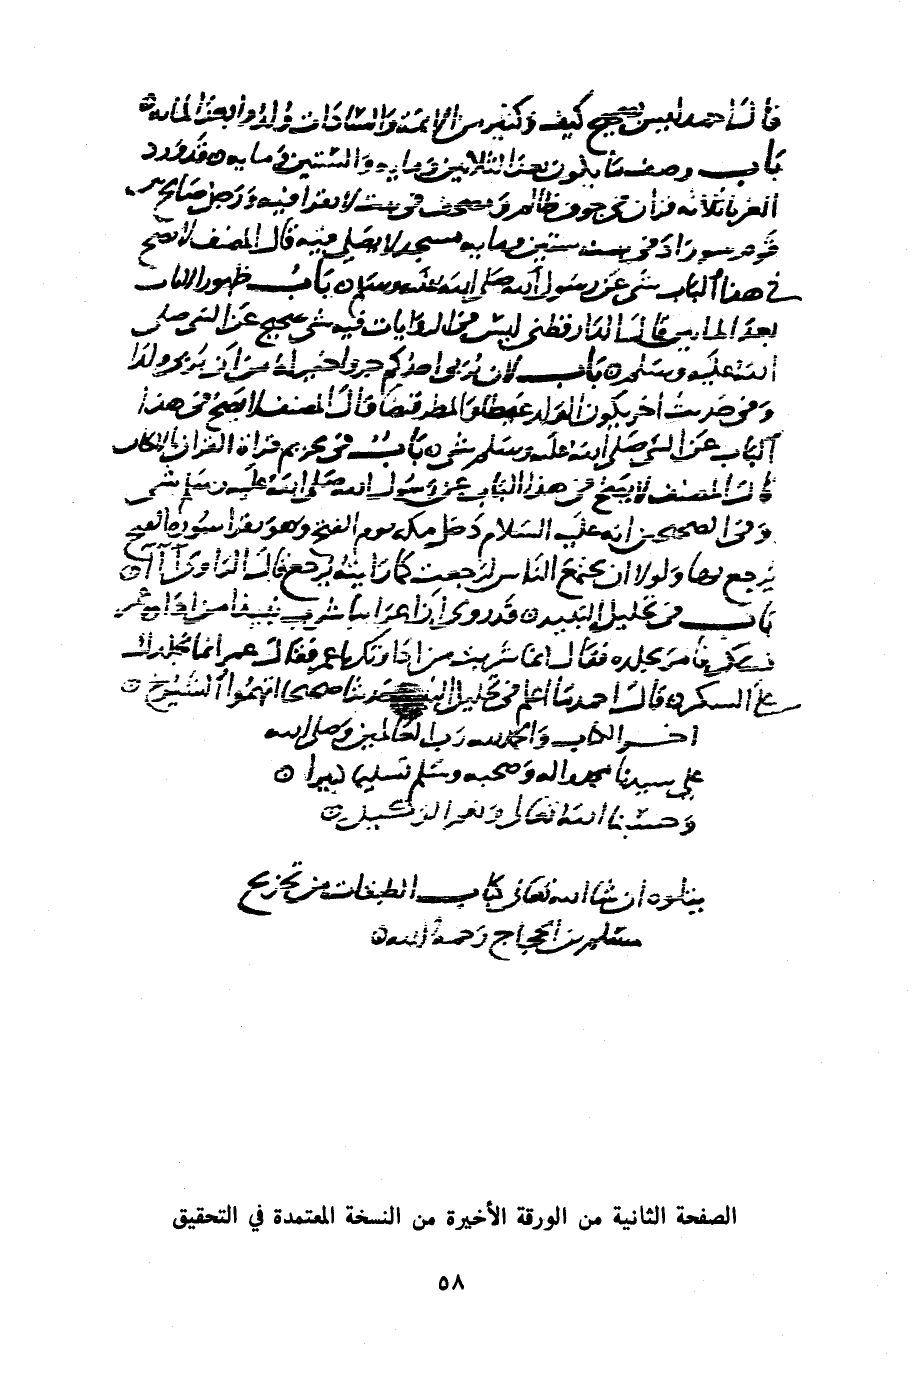 قال احمد ليس بصحيح كيف وكثير من الائمة والسادات ولدوا بعد المايه
باب وصف ما يكون بعد الثلاثين ومايه والستين ومايه قد ورد
الغرباء ثلاثه قرآن في جوف ظالم ومصحف في بيت لا يقرا فيه ورجل صالح
قوم سو زاد في سنه ستين ومايه مسجد لا يصلي فيه قال المصنف لا يصح
في هذا الباب شي عن رسول الله صلى الله عليه وسلم باب ظهور الايات
بعد المايتين قال الدارقطني ليس في الروايات فيه شي صحيح عن النبي صلى
الله عليه وسلم باب لان يربي احدكم جروا خير له من ان يربي ولدا
وفي حديث اخر يكون الولد غيظا والمطر قيضا قال المصنف لا يصح في هذا
الباب عن النبي صلى الله عليه وسلم شي باب في تحريم قراة القران بالالحان
قال المصنف لا يصح في هذا الباب عن رسول الله صلى الله عليه وسلم شي
وفي الصحيحين انه عليه السلام دخل مكه يوم الفتح وهو يقرا سورة الفتح
يرجع بها ولولا ان يجتمع الناس لرجعت كما رايته يرجع قال الراوي آ آ آ
باب في تحليل النبيذ قد روي ان اعرابيا شرب نبيذا من اداوة عمر
فسكر فامر بجلده فقال انما شربت من اداوتك يا عمر فقال عمر انما نجلدك
على السكر قال احمد ما اعلم في تحليل النبيذ حديثا صحيحا اتهموا الشيوخ
اخر الكتاب والحمد لله رب العالمين وصلى الله
على سيدنا محمد واله وصحبه وسلم تسليما كثيرا
وحسبنا الله تعالى ونعم الوكيل
يتلوه ان شا الله تعالى كتاب الطبقات من تخريج
مسلم بن الحجاج رحمه الله
الصفحة الثانية من الورقة الأخيرة من النسخة المعتمدة في التحقيق
٥٨